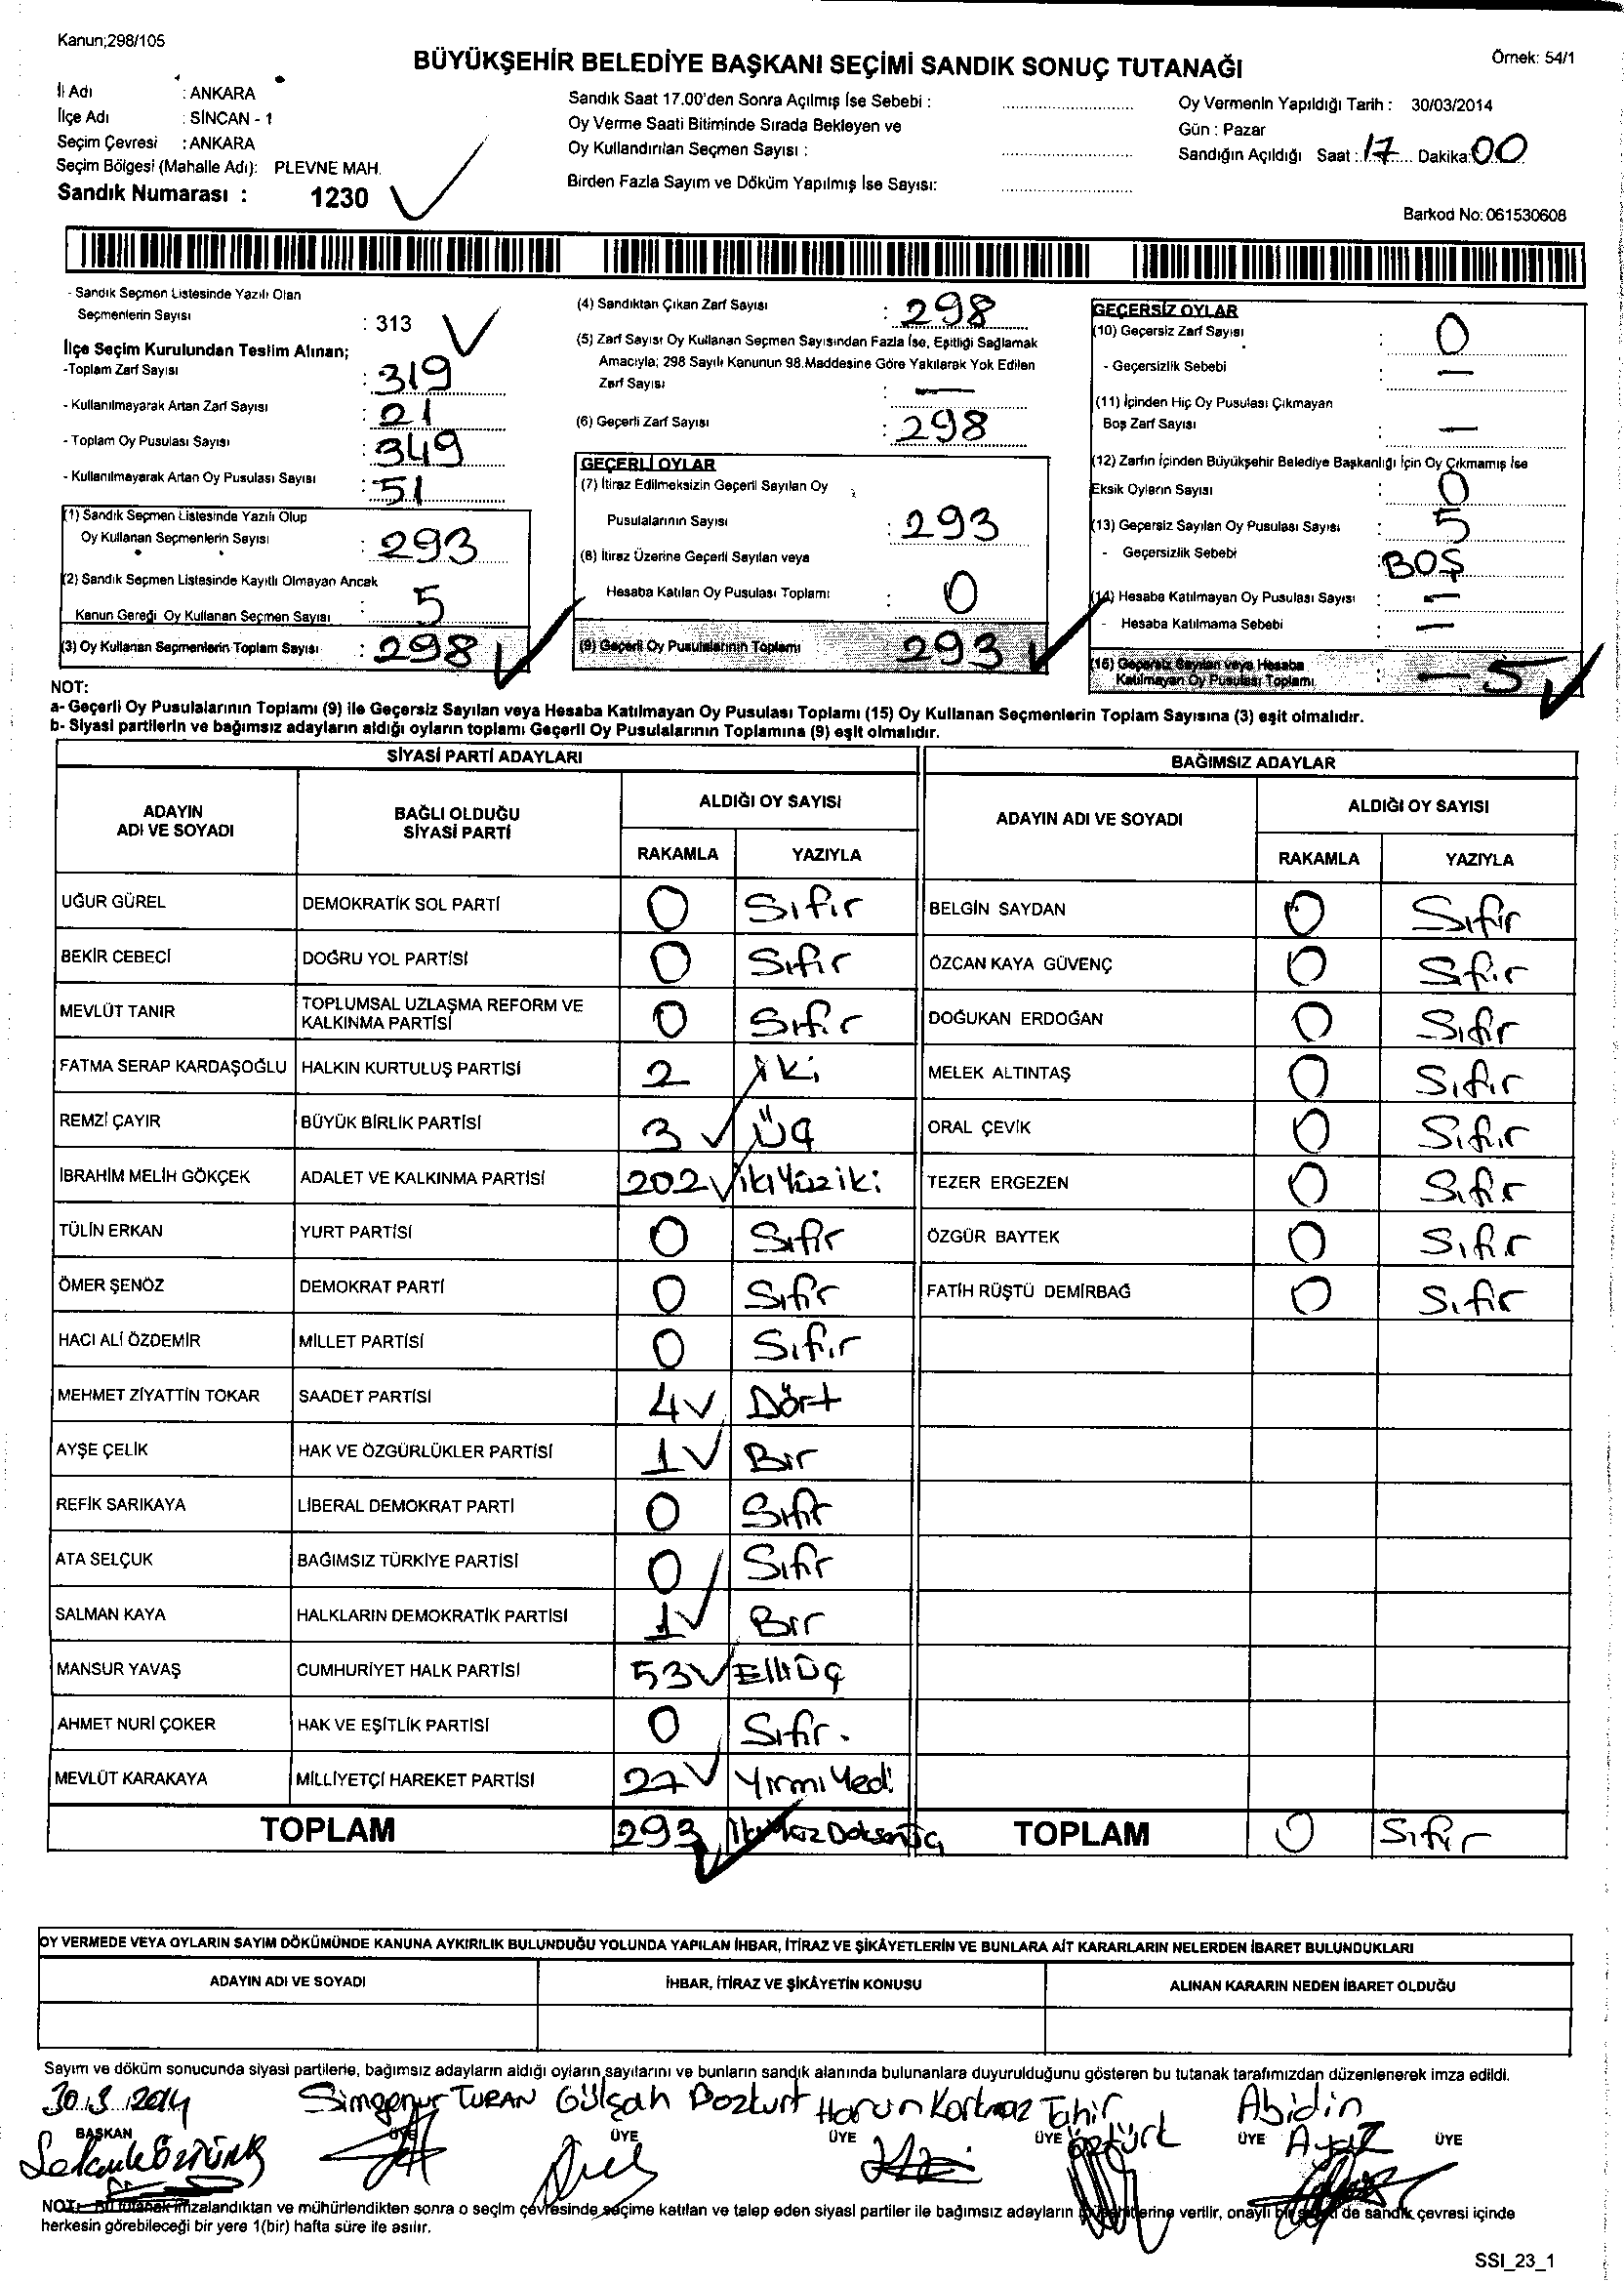 Kanun;298/105
BÜYÜKŞEHİR BELEDİYE BAŞKANI SEÇİMİ SANDIK SONUÇ TUTANAĞI
Örnek: 54/1
İli Adı : ANKARA
İlçe Adı : SİNCAN - 1
Seçim Çevresi : ANKARA
Seçim Bölgesi (Mahalle Adı): PLEVNE MAH.
Sandık Numarası : 1230
Sandık Saat 17.00'den Sonra Açılmış İse Sebebi :
Oy Verme Saati Bitiminde Sırada Bekleyen ve
Oy Kullandırılan Seçmen Sayısı :
Birden Fazla Sayım ve Döküm Yapılmış İse Sayısı:
Oy Vermenin Yapıldığı Tarih : 30/03/2014
Gün : Pazar
Sandığın Açıldığı Saat : 17 Dakika: 00
Barkod No: 061530608
- Sandık Seçmen Listesinde Yazılı Olan
Seçmenlerin Sayısı : 313
İlçe Seçim Kurulundan Teslim Alınan;
-Toplam Zarf Sayısı : 319
- Kullanılmayarak Artan Zarf Sayısı : 21
- Toplam Oy Pusulası Sayısı : 349
- Kullanılmayarak Artan Oy Pusulası Sayısı : 51
(1) Sandık Seçmen Listesinde Yazılı Olup
Oy Kullanan Seçmenlerin Sayısı : 293
(2) Sandık Seçmen Listesinde Kayıtlı Olmayan Ancak
Kanun Gereği Oy Kullanan Seçmen Sayısı : 5
(3) Oy Kullanan Seçmenlerin Toplam Sayısı : 298
(4) Sandıktan Çıkan Zarf Sayısı : 298
(5) Zarf Sayısı Oy Kullanan Seçmen Sayısından Fazla İse, Eşitliği Sağlamak
Amacıyla; 298 Sayılı Kanunun 98.Maddesine Göre Yakılarak Yok Edilen
Zarf Sayısı : —
(6) Geçerli Zarf Sayısı : 298
GEÇERLİ OYLAR
(7) İtiraz Edilmeksizin Geçerli Sayılan Oy
Pusulalarının Sayısı : 293
(8) İtiraz Üzerine Geçerli Sayılan veya
Hesaba Katılan Oy Pusulası Toplamı : 0
(9) Geçerli Oy Pusulalarının Toplamı 293
GEÇERSİZ OYLAR
(10) Geçersiz Zarf Sayısı : 0
- Geçersizlik Sebebi : —
(11) İçinden Hiç Oy Pusulası Çıkmayan
Boş Zarf Sayısı : —
(12) Zarfın İçinden Büyükşehir Belediye Başkanlığı İçin Oy Çıkmamış İse
Eksik Oyların Sayısı : 0
(13) Geçersiz Sayılan Oy Pusulası Sayısı : 5
- Geçersizlik Sebebi : BOŞ
(14) Hesaba Katılmayan Oy Pusulası Sayısı : —
- Hesaba Katılmama Sebebi : —
(15) Geçersiz Sayılan veya Hesaba
Katılmayan Oy Pusulası Toplamı — 5
NOT:
a- Geçerli Oy Pusulalarının Toplamı (9) ile Geçersiz Sayılan veya Hesaba Katılmayan Oy Pusulası Toplamı (15) Oy Kullanan Seçmenlerin Toplam Sayısına (3) eşit olmalıdır.
b- Siyasi partilerin ve bağımsız adayların aldığı oyların toplamı Geçerli Oy Pusulalarının Toplamına (9) eşit olmalıdır.
SİYASİ PARTİ ADAYLARI
ADAYIN ADI VE SOYADI
BAĞLI OLDUĞU SİYASİ PARTİ
ALDIĞI OY SAYISI
RAKAMLA YAZIYLA
UĞUR GÜREL DEMOKRATİK SOL PARTİ 0 Sıfır
BEKİR CEBECİ DOĞRU YOL PARTİSİ 0 Sıfır
MEVLÜT TANIR TOPLUMSAL UZLAŞMA REFORM VE KALKINMA PARTİSİ 0 Sıfır
FATMA SERAP KARDAŞOĞLU HALKIN KURTULUŞ PARTİSİ 2 iki
REMZİ ÇAYIR BÜYÜK BİRLİK PARTİSİ 3 Üç
İBRAHİM MELİH GÖKÇEK ADALET VE KALKINMA PARTİSİ 202 ikiYüziki
TÜLİN ERKAN YURT PARTİSİ 0 Sıfır
ÖMER ŞENÖZ DEMOKRAT PARTİ 0 Sıfır
HACI ALİ ÖZDEMİR MİLLET PARTİSİ 0 Sıfır
MEHMET ZİYATTİN TOKAR SAADET PARTİSİ 4 Dört
AYŞE ÇELİK HAK VE ÖZGÜRLÜKLER PARTİSİ 1 Bir
REFİK SARIKAYA LİBERAL DEMOKRAT PARTİ 0 Sıfır
ATA SELÇUK BAĞIMSIZ TÜRKİYE PARTİSİ 0 Sıfır
SALMAN KAYA HALKLARIN DEMOKRATİK PARTİSİ 1 Bir
MANSUR YAVAŞ CUMHURİYET HALK PARTİSİ 53 ElliÜç
AHMET NURİ ÇOKER HAK VE EŞİTLİK PARTİSİ 0 Sıfır.
MEVLÜT KARAKAYA MİLLİYETÇİ HAREKET PARTİSİ 27 YirmiYedi
TOPLAM 293 ikiYüzDoksanÜç
BAĞIMSIZ ADAYLAR
ADAYIN ADI VE SOYADI
ALDIĞI OY SAYISI
RAKAMLA YAZIYLA
BELGİN SAYDAN 0 Sıfır
ÖZCAN KAYA GÜVENÇ 0 Sıfır
DOĞUKAN ERDOĞAN 0 Sıfır
MELEK ALTINTAŞ 0 Sıfır
ORAL ÇEVİK 0 Sıfır
TEZER ERGEZEN 0 Sıfır
ÖZGÜR BAYTEK 0 Sıfır
FATİH RÜŞTÜ DEMİRBAĞ 0 Sıfır
TOPLAM 0 Sıfır
OY VERMEDE VEYA OYLARIN SAYIM DÖKÜMÜNDE KANUNA AYKIRILIK BULUNDUĞU YOLUNDA YAPILAN İHBAR, İTİRAZ VE ŞİKÂYETLERİN VE BUNLARA AİT KARARLARIN NELERDEN İBARET BULUNDUKLARI
ADAYIN ADI VE SOYADI İHBAR, İTİRAZ VE ŞİKÂYETİN KONUSU ALINAN KARARIN NEDEN İBARET OLDUĞU
Sayım ve döküm sonucunda siyasi partilerle, bağımsız adayların aldığı oyların sayılarını ve bunların sandık alanında bulunanlara duyurulduğunu gösteren bu tutanak tarafımızdan düzenlenerek imza edildi.
30.3.2014 Simgenur TURAN Gülşah Bozkurt Harun Korkmaz Tahir Öztürk Abidin
BAŞKAN ÜYE ÜYE ÜYE ÜYE ÜYE ÜYE
ÖZTÜRK
NOT: Bu tutanak imzalandıktan ve mühürlendikten sonra o seçim çevresinde seçime katılan ve talep eden siyasi partiler ile bağımsız adayların müşahitlerine verilir, onaylı bir sureti de sandık çevresi içinde
herkesin görebileceği bir yere 1(bir) hafta süre ile asılır.
SSI_23_1